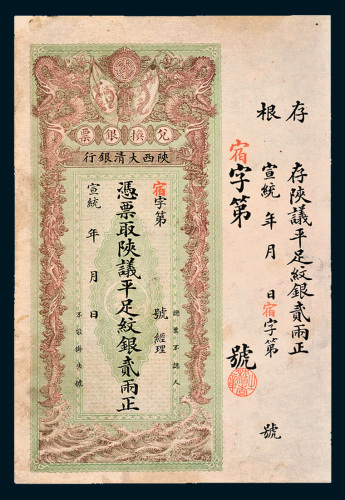 存根
存陝議平足紋銀貳兩正
宣統 年 月 日宿字第 號
宿字第 號
票銀換兌
行銀清大西陝
宿字第 號 經理
憑票取陝議平足紋銀貳兩正
宣統 年 月 日
認票不認人
不咨掛失號